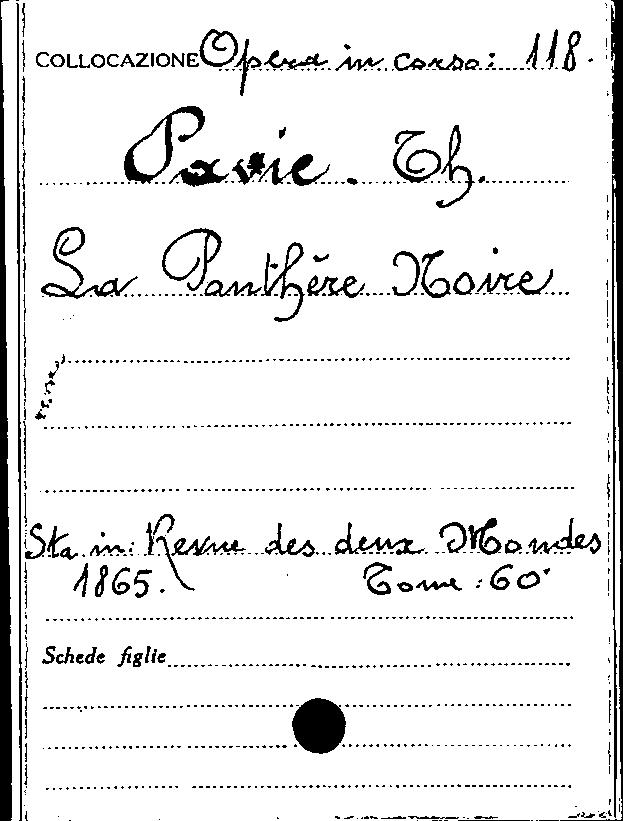 COLLOCAZIONE Opera in corso: 118.
Pavie. Th.
La Panthère Noire
Sta in: Revue des deux Mondes
1865. Tome: 60
Schede figlie